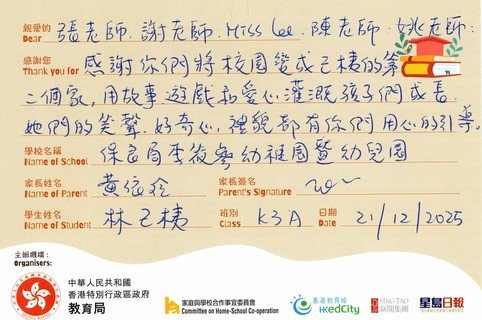 親愛的 張老師. 謝老師. Miss Lee. 陳老師. 姚老師:
Dear
感謝您 感謝你們將校園變成己棈的第
Thank you for
二個家, 用故事遊戲和愛心灌溉孩子們成長.
她們的笑聲. 好奇心, 禮貌都有你們用心的引導。
學校名稱 保良局李筱參幼稚園暨幼兒園
Name of School
家長姓名 黃信玲 家長簽名
Name of Parent Parent's Signature
學生姓名 林己 班別 K3A 日期 21/12/2025
Name of Student Class Date
主辦機構:
Organisers:
中華人民共和國
香港特別行政區政府
教育局
家庭與學校合作事宜委員會
Committee on Home-School Co-operation
香港教育城
HKedCity
星島 SING TAO
新聞集團
星島日報